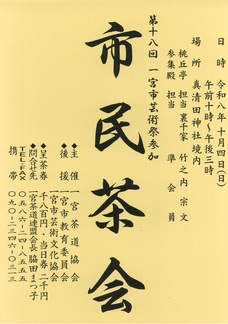 日時 令和八年十月四日(日)
午前十時~午後三時
場所 真清田神社境内
桃丘亭 担当 裏千家 竹之内宗文
参集殿 担当 準会員
第十八回 一宮市芸術祭参加
市民茶会
◆主催 一宮茶道協会
◆後援 一宮市教育委員会
一宮市芸術文化協会
◆呈茶券 千八百円・当日券 二千円
◆問合せ先 一宮茶道連盟会長 脇田まつ子
TEL・FAX 〇五八六-二四-八五五五
携帯 〇九〇-二三四六-〇三一三